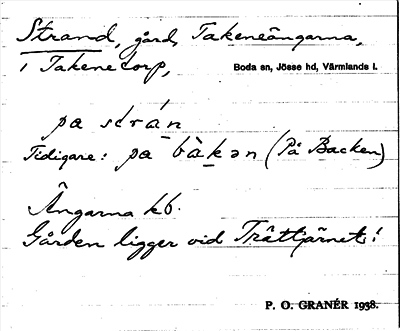 Strand, gård, Takeneängarna,
i Takene torp,
Boda sn, Jösse hd, Värmlands l.
pa strán
Tidigare: pa bàkən (På Backen)
Ängarna kb.
Gården ligger vid Trättjärnet!
P. O. GRANÉR 1938.